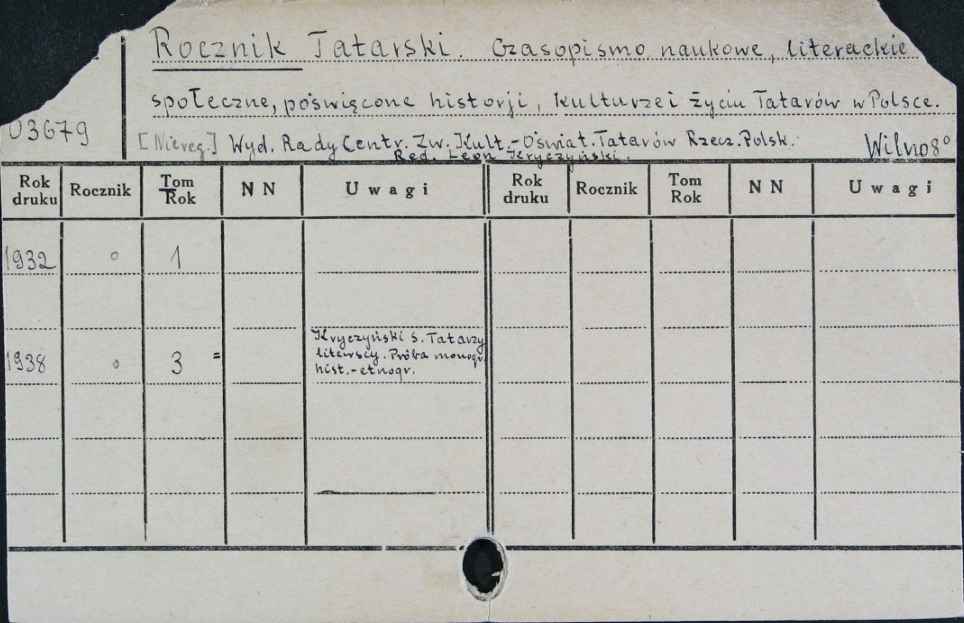 Rocznik Tatarski. Czasopismo naukowe, literackie
społeczne, poświęcone historji, kulturze i życiu Tatarów w Polsce.
03679
[Niereg.] Wyd. Rady Centr. Zw. Kult.-Oświat. Tatarów Rzecz. Polsk. Wilno 8°
Red. Leon Kryczyński.
Rok druku Rocznik Tom Rok N N Uwagi Rok druku Rocznik Tom Rok N N Uwagi
1932 ° 1
1938 ° 3 =
Kryczyński S. Tatarzy
litewscy. Próba monogr.
hist.-etnogr.